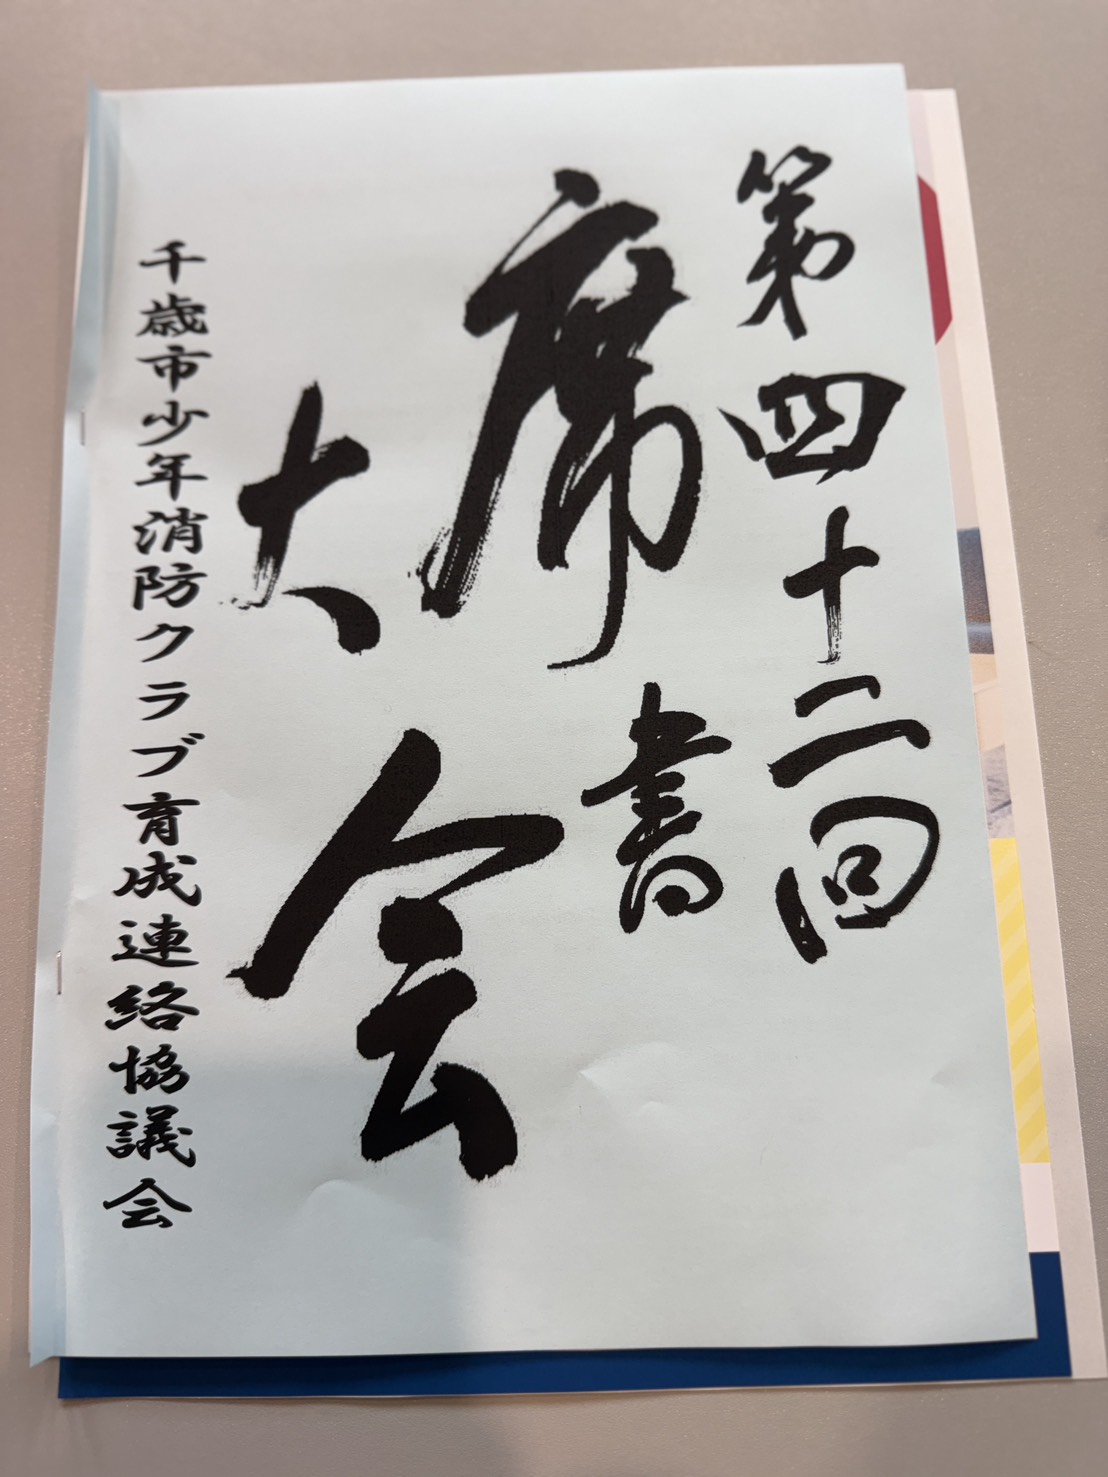 第四十二回
席書
大会
千歳市少年消防クラブ育成連絡協議会